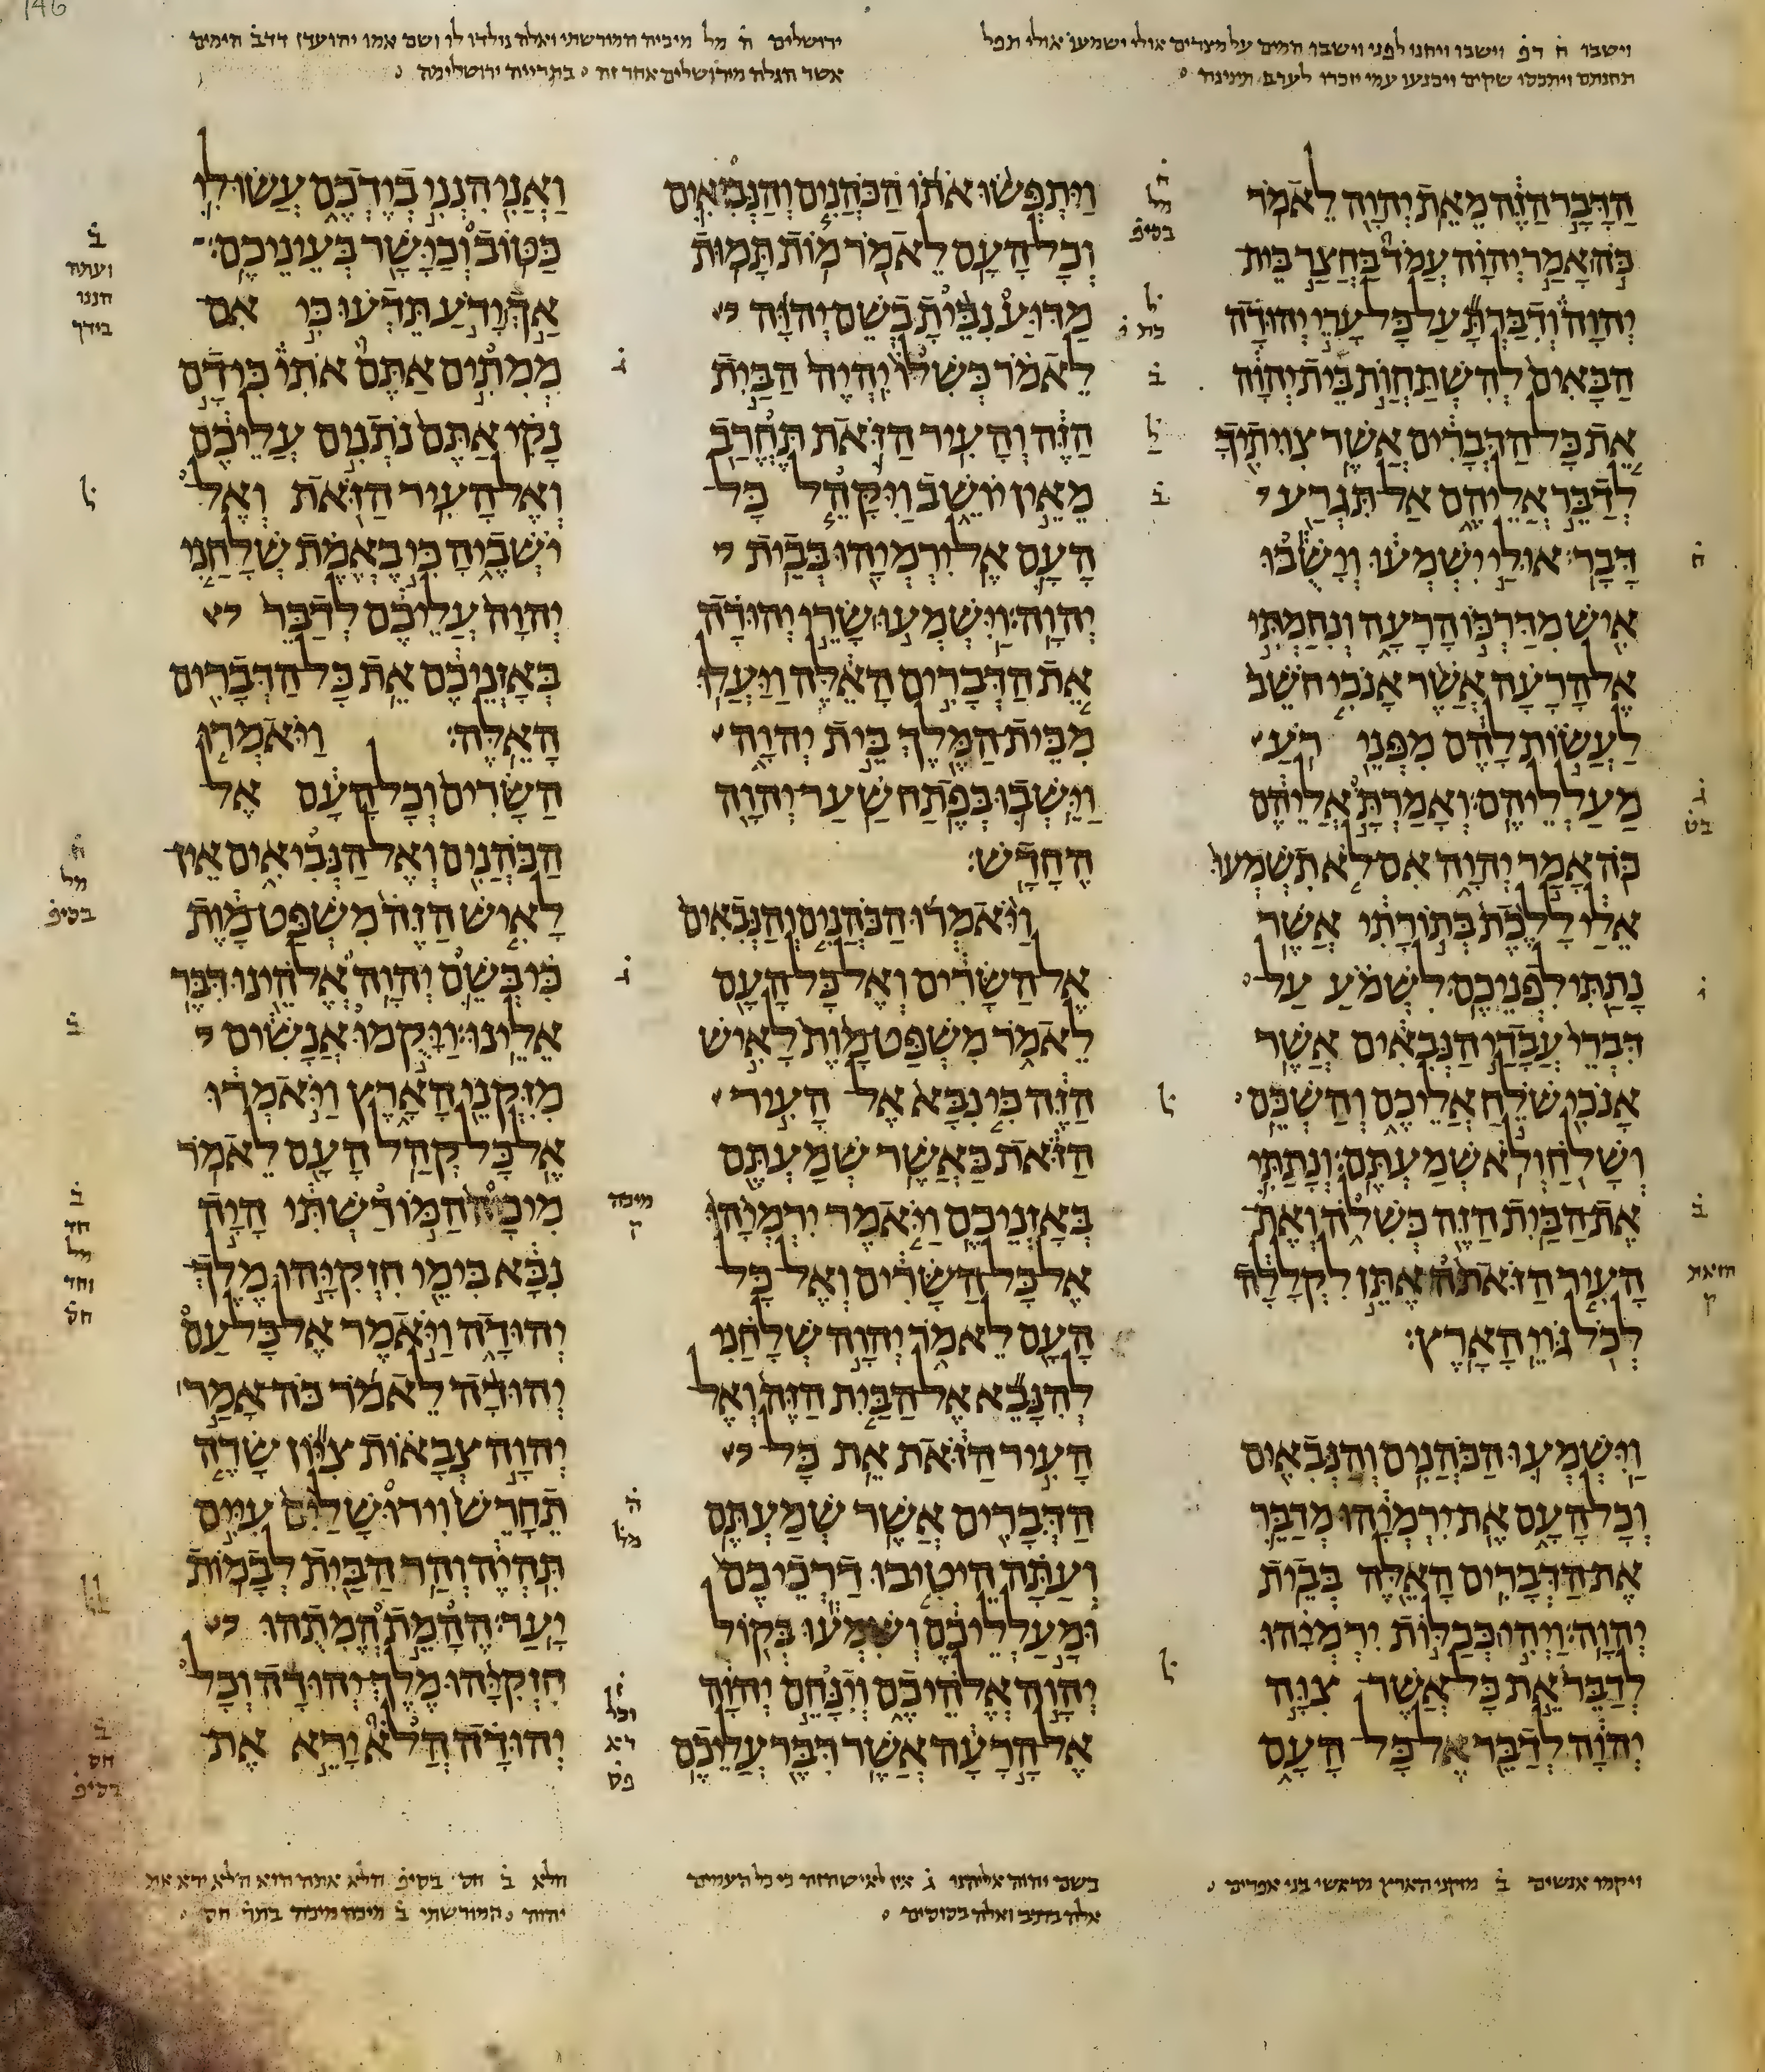 וישבו ח̇ דפ̇ וישבו ויחנו לפני וישבו המים על מצרים אולי ישמעו אולי תפל
תחנתם ויתכסו שקים ויכנעו עמי יזכרו לערב תנינה
ירושלים ה̇ מל מיכיה המורשתי ואלה נולדו לו ושם אמו יהועדן דדב̇ הימים
אשר הגלה מירושלים אחר זה בתרייה ירושלימה
הדבר הזה מאת יהוה לאמר
כה אמר יהוה עמד בחצר בית
יהוה ודברת על כל ערי יהודה
הבאים להשתחות בית יהוה
את כל הדברים אשר צויתיך
לדבר אליהם אל תגרע
דבר׃ אולי ישמעו וישבו
איש מדרכו הרעה ונחמתי
אל הרעה אשר אנכי חשב
לעשות להם מפני רע
מעלליהם׃ ואמרת אליהם
כה אמר יהוה אם לא תשמעו
אלי ללכת בתורתי אשר
נתתי לפניכם׃ לשמע על
דברי עבדי הנבאים אשר
אנכי שלח אליכם והשכם
ושלח ולא שמעתם׃ ונתתי
את הבית הזה כשלה ואת
העיר הזאתה אתן לקללה
לכל גויי הארץ׃
וישמעו הכהנים והנבאים
וכל העם את ירמיהו מדבר
את הדברים האלה בבית
יהוה׃ ויהי ככלות ירמיהו
לדבר את כל אשר צוה
יהוה לדבר אל כל העם
ויתפשו אתו הכהנים והנביאים
וכל העם לאמר מות תמות
מדוע נבית בשם יהוה
לאמר כשלו יהיה הבית
הזה והעיר הזאת תחרב
מאין יושב ויקהל כל
העם אל ירמיהו בבית
יהוה׃ וישמעו שרי יהודה
את הדברים האלה ויעלו
מבית המלך בית יהוה
וישבו בפתח שער יהוה
החדש׃
ויאמרו הכהנים והנבאים
אל השרים ואל כל העם
לאמר משפט מות לאיש
הזה כי נבא אל העיר
הזאת כאשר שמעתם
באזניכם ויאמר ירמיהו
אל כל השרים ואל כל
העם לאמר יהוה שלחני
להנבא אל הבית הזה ואל
העיר הזאת את כל
הדברים אשר שמעתם
ועתה היטיבו דרכיכם
ומעלליכם ושמעו בקול
יהוה אלהיכם וינחם יהוה
אל הרעה אשר דבר עליכם
ואני הנני בידכם עשו לי
כטוב וכישר בעיניכם׃
אך ידע תדעו כי אם
ממתים אתם אתי כי דם
נקי אתם נתנים עליכם
ואל העיר הזאת ואל
ישביה כי באמת שלחני
יהוה עליכם לדבר
באזניכם את כל הדברים
האלה׃ ויאמרו
השרים וכל העם אל
הכהנים ואל הנביאים אין
לאיש הזה משפט מות
כי בשם יהוה אלהינו דבר
אלינו׃ ויקמו אנשים
מזקני הארץ ויאמרו
אל כל קהל העם לאמר
מיכיה המורשתי היה
נבא בימי חזקיהו מלך
יהודה ויאמר אל כל עם
יהודה לאמר כה אמר
יהוה צבאות ציון שדה
תחרש וירושלים עיים
תהיה והר הבית לבמות
יער׃ ההמת המתהו
חזקיהו מלך יהודה וכל
יהודה הלא ירא את
ויקמו אנשים ב̇ מזקני הארץ מראשי בני אפרים
בשם יהוה אלהינו ג̇ אין לאיש הזה כי כל העמים
אלה ברכב ואלה בסוסים
הלא ב̇ חס בסיפ̇ הלא אתה הוא הלא ירא את
יהוה המורשתי ב̇ מיכה מיכה בתר̇ חס